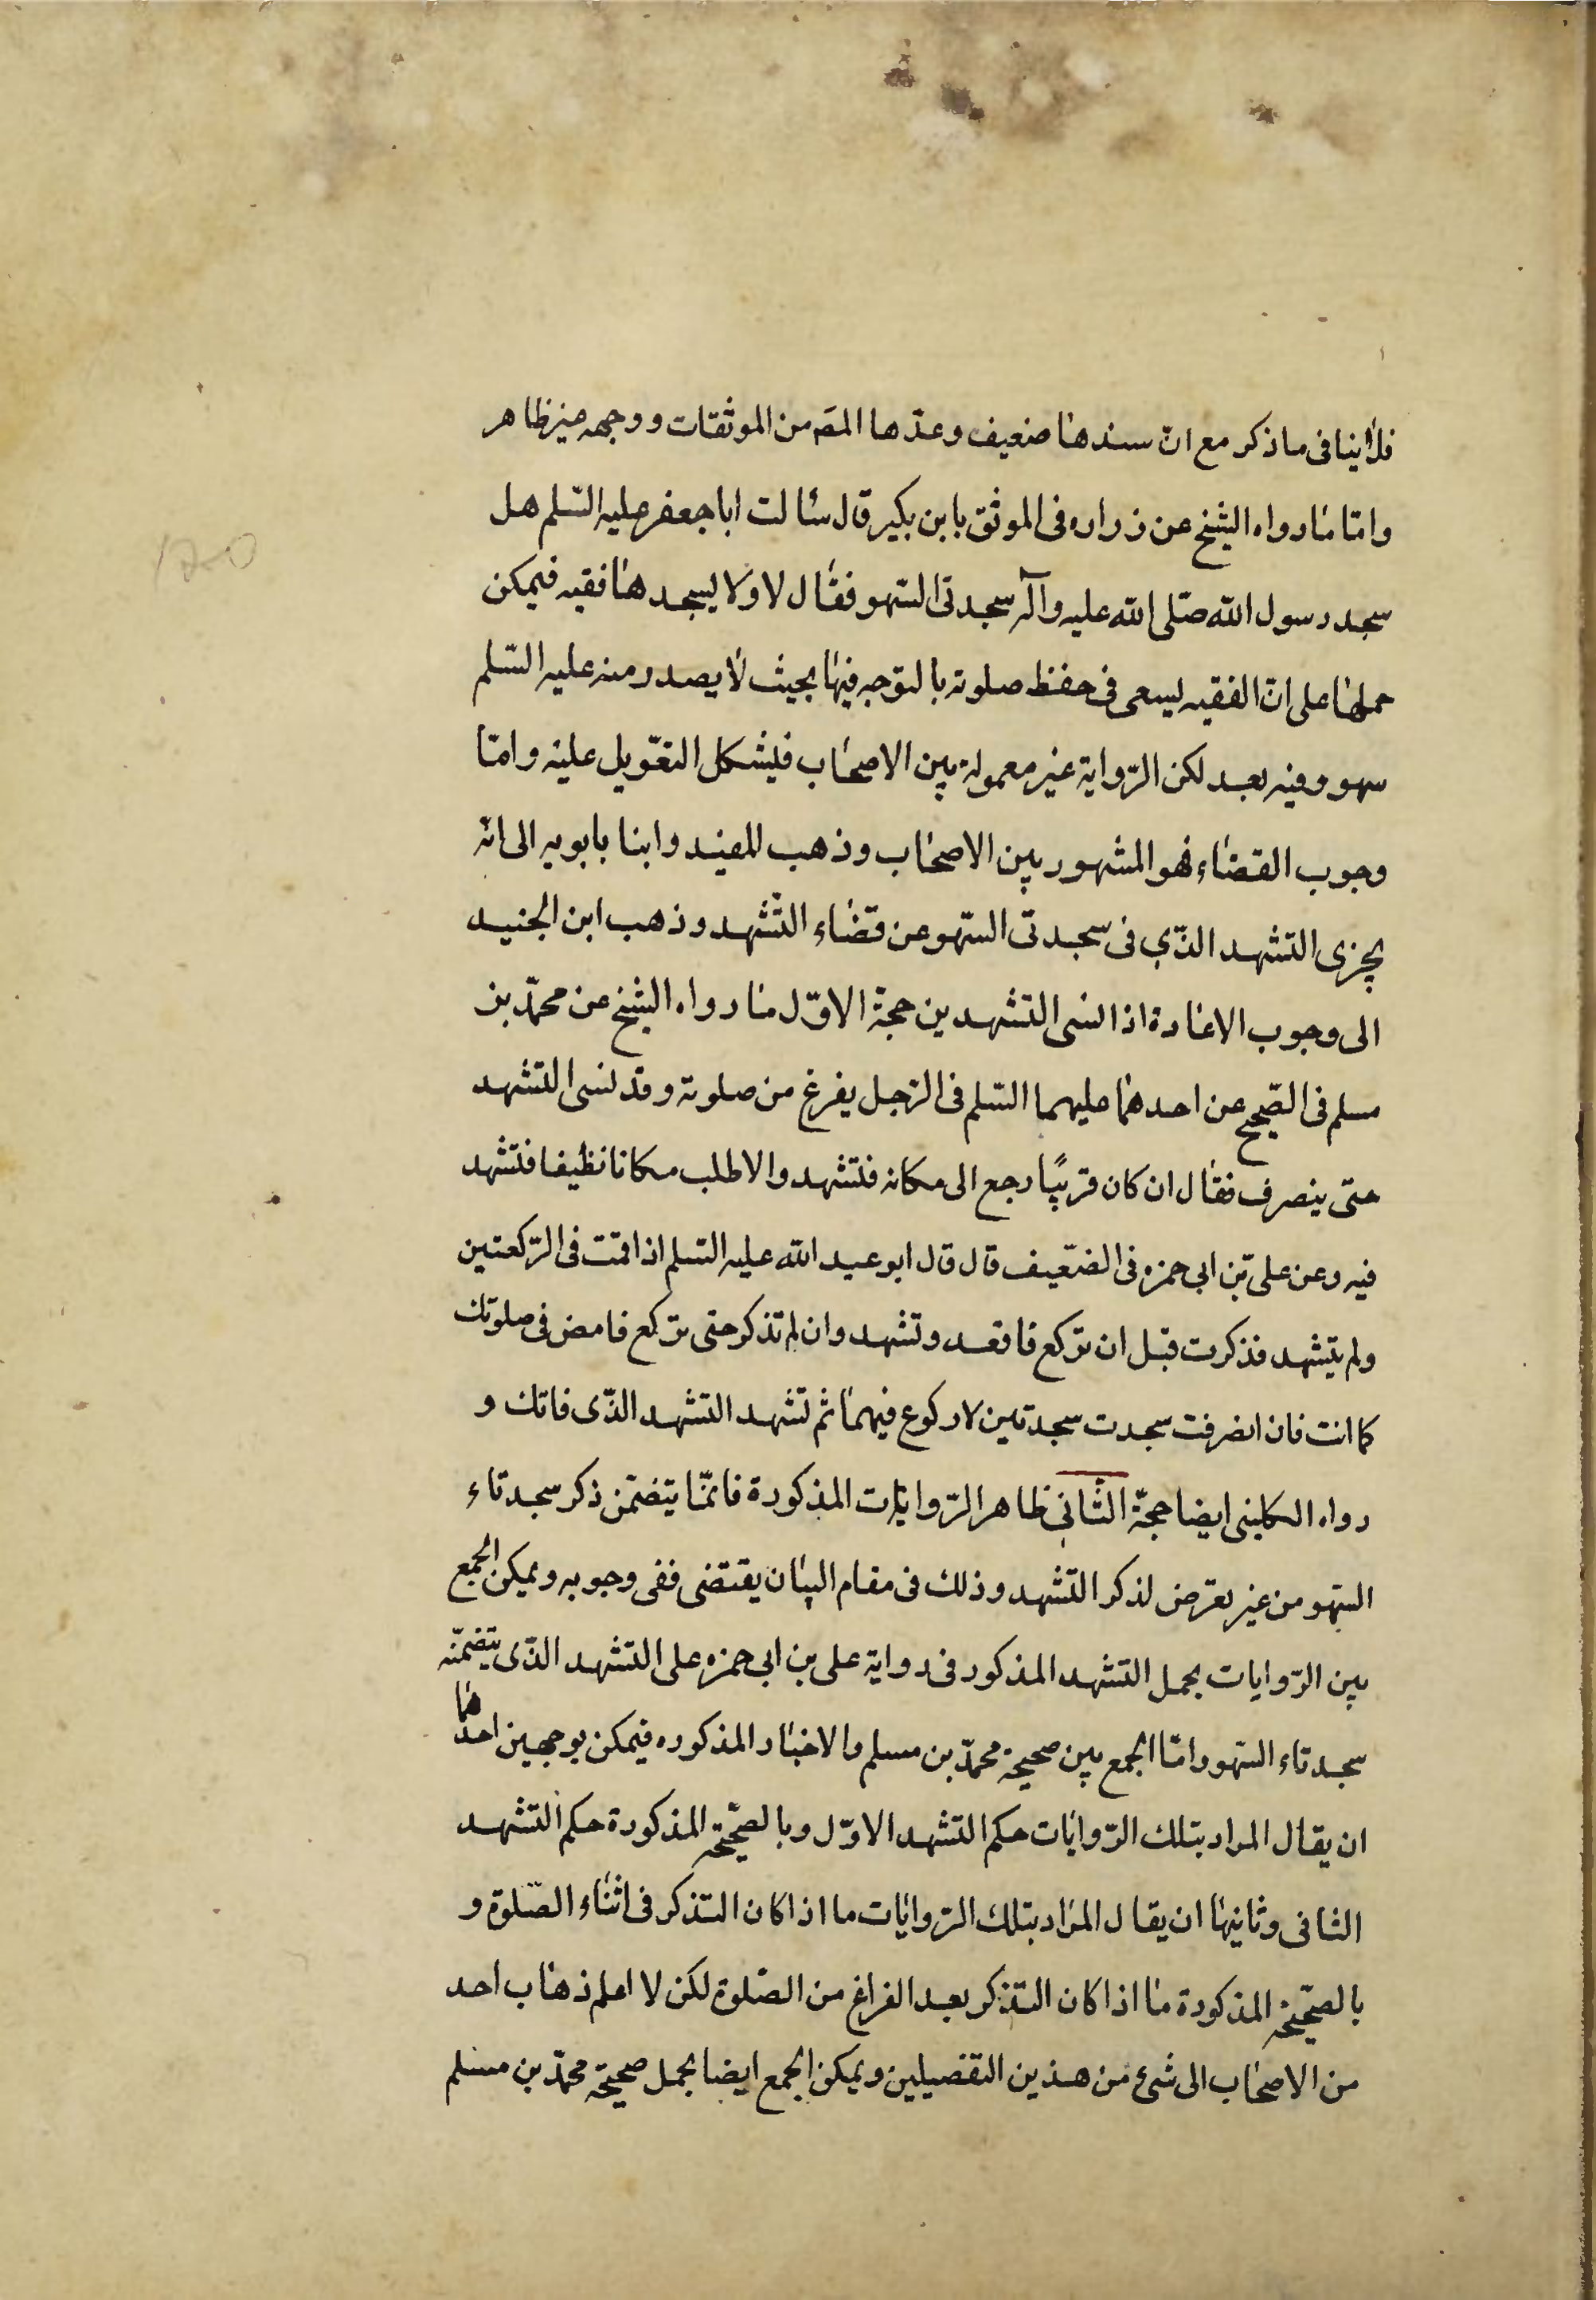 فلا ينافى ما ذكر مع ان سندها ضعيف وعدّها المصَ من الموثقات ووجهه غير ظاهر
وامّا ما رواه الشيخ عن زراره فى الموثق بابن بكير قال سئالت ابا جعفر عليه السّلم هل
سجد رسول الله صلّى الله عليه وآله سجدتى السّهو فقال لا ولا يسجدها فقيه فيمكن
حملها على انّ الفقيه يسعى فى حفظ صلوته بالتوّجه فيها بحيث لا يصدر منه عليه السّلم
سهو وفيه بعد لكن الرّواية غير معمولة بين الاصحاب فيشكل التعّويل عليه وامّا
وجوب القضاء فهو المشهور بين الاصحاب وذهب المفيد وابنا بابويه الى انّه
يجزى التشهد الذّى فى سجدتى السّهو عن قضاء التّشهد وذهب ابن الجنيد
الى وجوب الاعادة اذا نسى التشهدين حجة الاوّل ما رواه الشيخ عن محمّد بن
مسلم فى الصّحيح عن احدهما عليهما السّلم فى الرّجل يفرغ من صلوته وقد نسى التشهد
حتى ينصرف فقال ان كان قريبًا رجع الى مكانه فتشهد والا طلب مكانا نظيفا فتشهد
فيه وعن على بن ابى حمزه فى الضّعيف قال قال ابو عبد الله عليه السّلم اذا قمت فى الرّكعتين
ولم يتشهد فذكرت قبل ان تركع فاقعد وتشهد وان لم تذكر حتى تركع فامض فى صلوتك
كما انت فان انصرفت سجدت سجدتين لا ركوع فيهما ثم تشهد التشهد الذّى فاتك و
رواه الكلينى ايضا حجّة الثّانى ظاهر الرّوايات المذكورة فانّما يتضمّن ذكر سجدتاء
السّهو من غير تعرّض لذكر التّشهد وذلك فى مقام البيان يقتضى ففى وجوبه ويمكن الجمع
بين الرّوايات بحمل التشهد المذكور فى رواية على بن ابى حمزه على التشهد الذّى يتضمّنه
سجدتاء السّهو وامّا الجمع بين صحيحة محمّد بن مسلم والاخبار المذكوره فيمكن بوجهين احدهما
ان يقال المراد بتلك الرّوايات حكم التشهد الاوّل وبالصّحيحة المذكورة حكم التشهد
الثانى وثانيها ان يقال المراد بتلك الرّوايات ما اذا كان التذكر فى اثناء الصّلوة و
بالصّحيحة المذكورة ما اذا كان التذكر بعد الفراغ من الصّلوة لكن لا اعلم ذهاب احد
من الاصحاب الى شئ من هذين التفصيلين ويمكن الجمع ايضا بحمل صحيحة محمّد بن مسلم